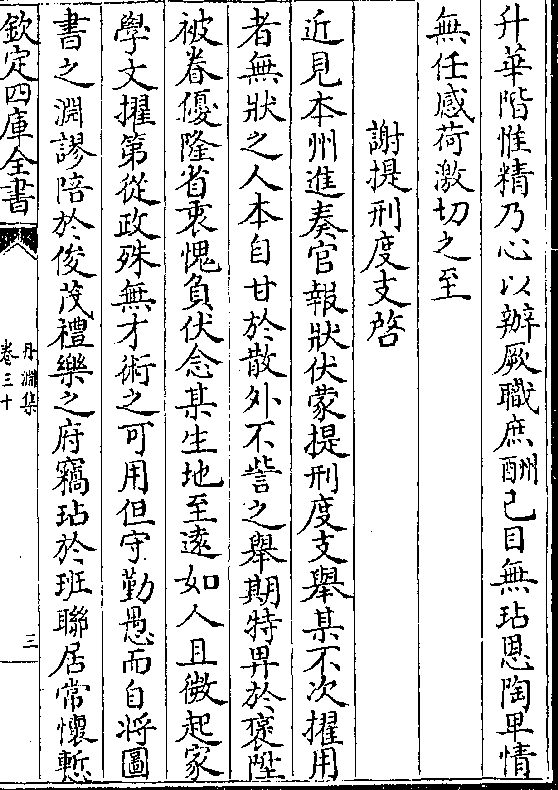 升華階惟精乃心以辦厥職庶酬己目無玷恩陶卑情
無任感荷激切之至
謝提刑度支啓
近見本州進奏官報狀伏蒙提刑度支舉某不次擢用
者無狀之人本自甘於散外不訾之舉期特畀於襃陞
被眷優隆省衷愧負伏念某生地至逺如人且微起家
學文擢第從政殊無才術之可用但守勤愚而自將圖
書之淵謬陪於俊茂禮樂之府竊玷於班聯居常懷慙
欽定四庫全書
丹淵集
卷三十
三